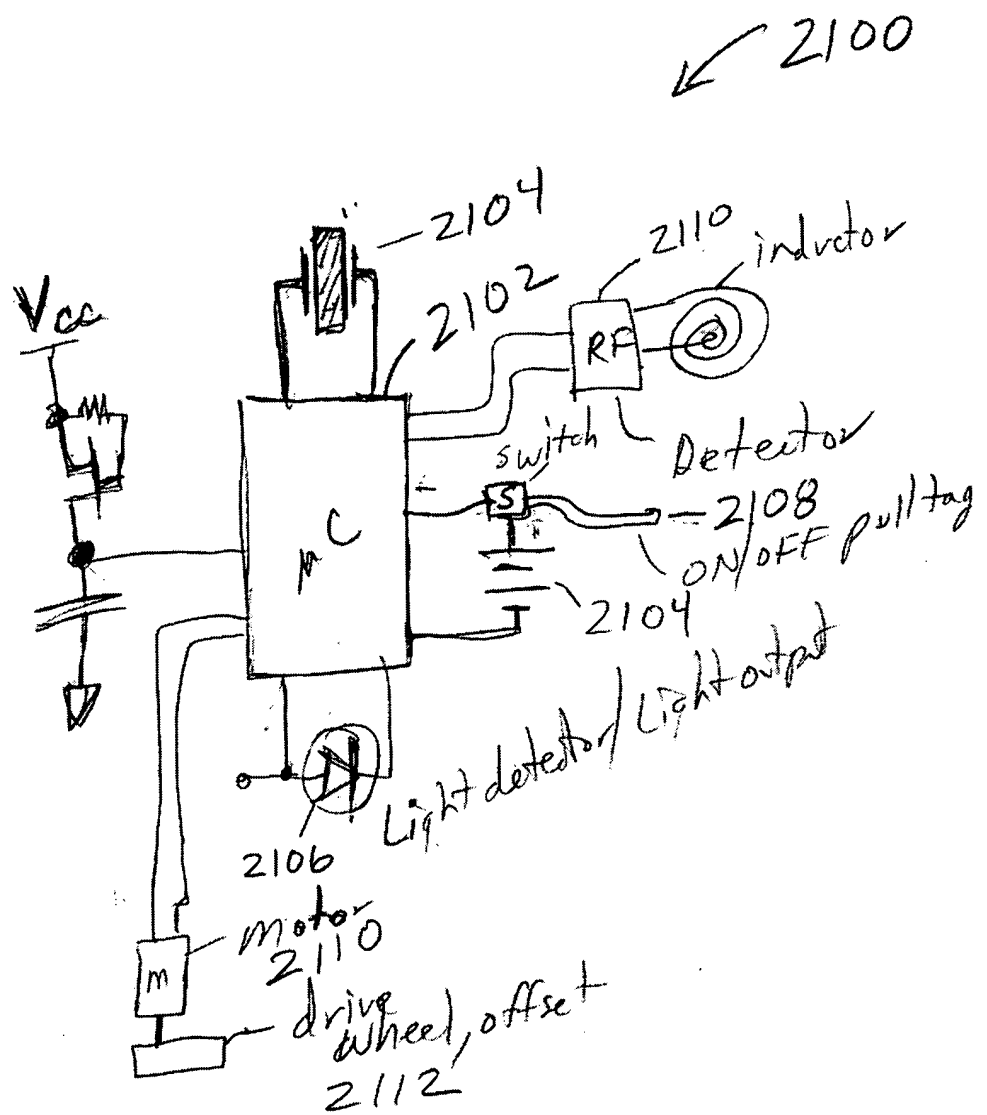 2100
2104
2102
2110
inductor
Vcc
RF
Detector
switch
S
+
2108
ON/OFF pull tag
μC
2104
Light detector/Light output
2106
motor
2110
m
drive
wheel, offset
2112